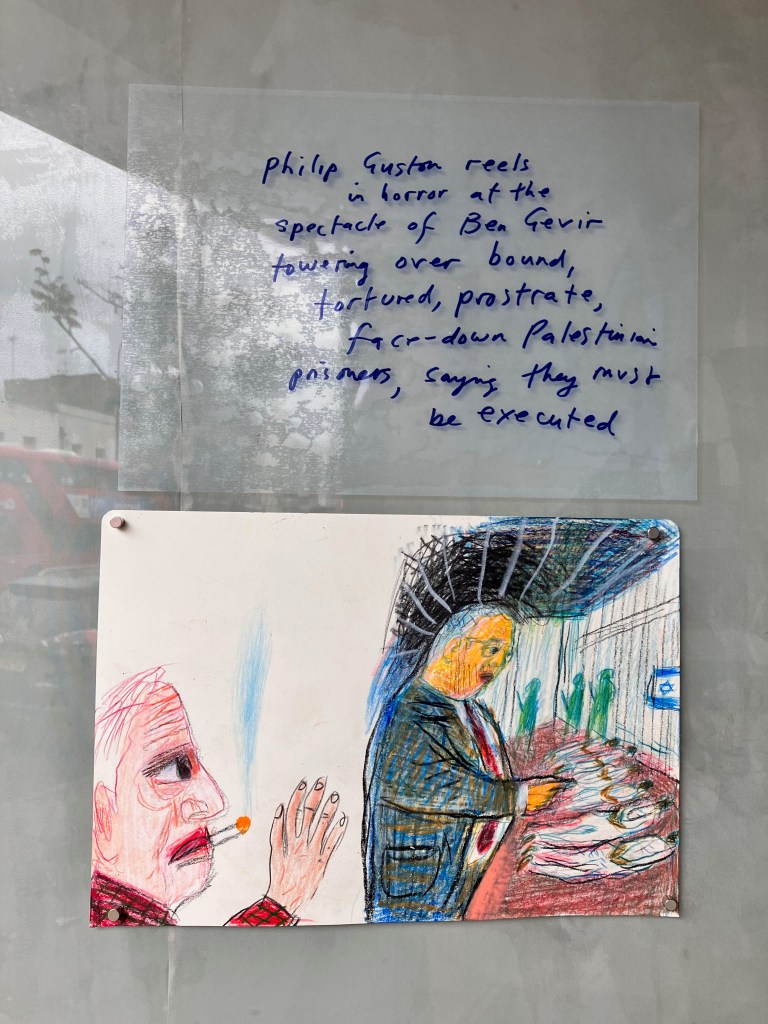 Philip Guston reels
in horror at the
spectacle of Ben Gevir
towering over bound,
tortured, prostrate,
face-down Palestinian
prisoners, saying they must
be executed